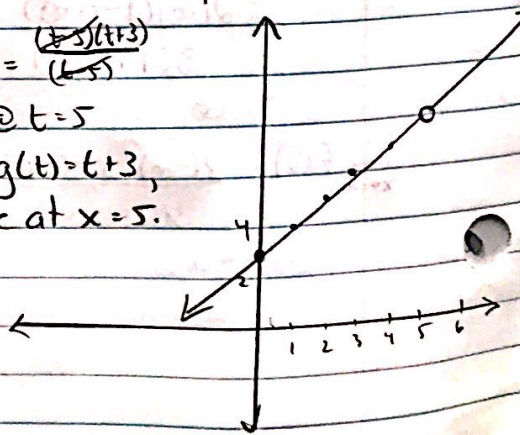 (t-5)(t+3)
= (t-5)
@ t=5
g(t)=t+3,
at x=5.
4
2
1 2 3 4 5 6